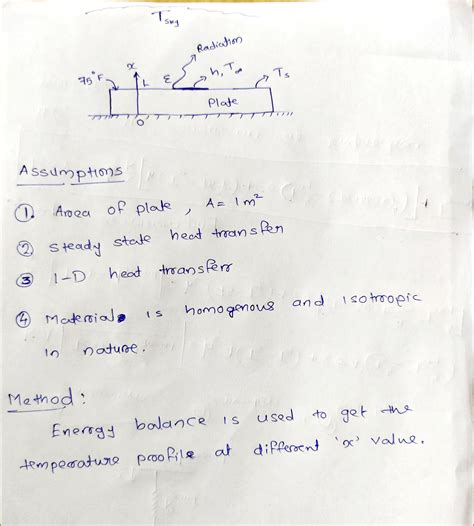 Tsky
Radiation
x
75°F
L
ε
h, T∞
Ts
Plate
O
Assumptions
① Area of plate, A = 1 m²
② steady state heat transfer
③ 1-D heat transferr
④ Material is homogenous and isotropic
in nature.
Method:
Energy balance is used to get the
temperature profile at different 'x' value.